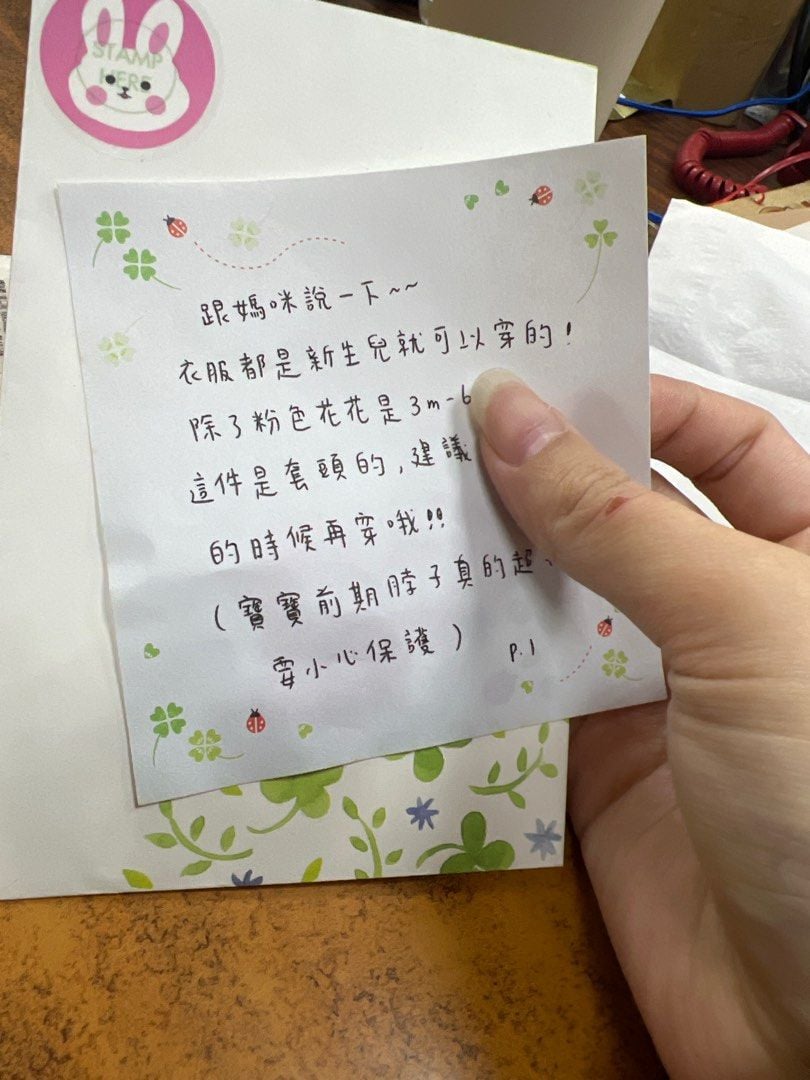 STAMP
HERE
跟媽咪說一下~~
衣服都是新生兒就可以穿的!
除了粉色花花是3m-6
這件是套頭的,建議
的時候再穿哦!!
(寶寶前期脖子真的超
要小心保護)
p.1